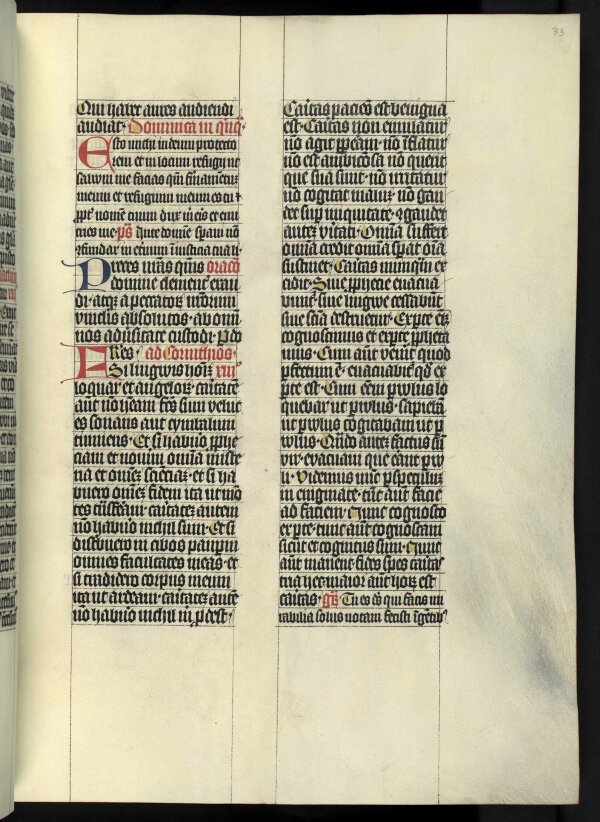 33
Qui habet aures audiendi
audiat. Dominica in quīq̄
Esto michi in deum protecto
rem et in locum refugij ut
saluum me facias qm̄ firmamentū
meum et refugium meum es tu ⁊
ꝓpt̄ nomē tuum dux m̄ eis et enu
tries me p̄s In te domine speraui nō
confundar in et̄num ī iusticia tua li
Preces nr̄as quis oracō
domine clementer exau
di. atqꝫ a peccatoꝝ nr̄orum
vinclis absolutos. ab omī
nos aduersitate custodi. P do
ad Corinthios.
Fr̄es. xiii
Si linguis hoīm
loquar et angeloꝝ. caritatē
aūt nō heam. fc̄s sum velut
es sonans aut cymbalum
tinniens. Et si habuero ꝓphe
ciam et nouerim om̄ia miste
ria et omnē scienciā. et si ha
buero omnē fidem ita ut mō
tes trāsferam. caritatē autem
nō habuero nichil sum. Et si
distribuero in cibos pauperū
omnes facultates meas. et
si tradidero corpus meum
ita ut ardeam. caritatē autē
nō habuero nichil m̄ ꝓdest.
Caritas paciēs est benigna
est. Caritas non emulatur
nō agit ꝑperam. nō īflatur
nō est ambiciosa nō querit
que sua sunt. nō irritatur
nō cogitat malū. nō gau
det suꝑ iniquitate. ꝯgaudet
autē vītati. Omnia suffert
om̄ia credit om̄ia sperat oīa
sustinet. Caritas nunquā ex
cidit. Siue ꝓphecie euacua
bunt͛ siue lingwe cessabūt
siue sciēcia destruetur. Ex ꝑte em̄
cognoscimus et ex ꝑte ꝓpheta
mus. Cum aūt venerit quod
ꝑfectum ē. euacuabit͛ qd̄ ex
ꝑte est. Cum essem ꝑwlus lo
quebar ut ꝑwlus. sapiebā
ut ꝑwlus cogitabam ut ꝑ
wlus. Qn̄do autē factus sū
vir. euacuaui que erāt ꝑwu
li. Videmus nūc ꝑ speculum
in enigmate. tūc aūt facie
ad faciem. Nunc cognosco
ex ꝑte. tunc aūt cognoscam
sicut et cognitus sum. Nunc
aūt manent. fides spes carita
tria hec. maior aūt hoꝝ est
caritas. gr̄ Tu es ds̄ qui facis mi
rabilia solus notam fecisti ī gētibꝫ